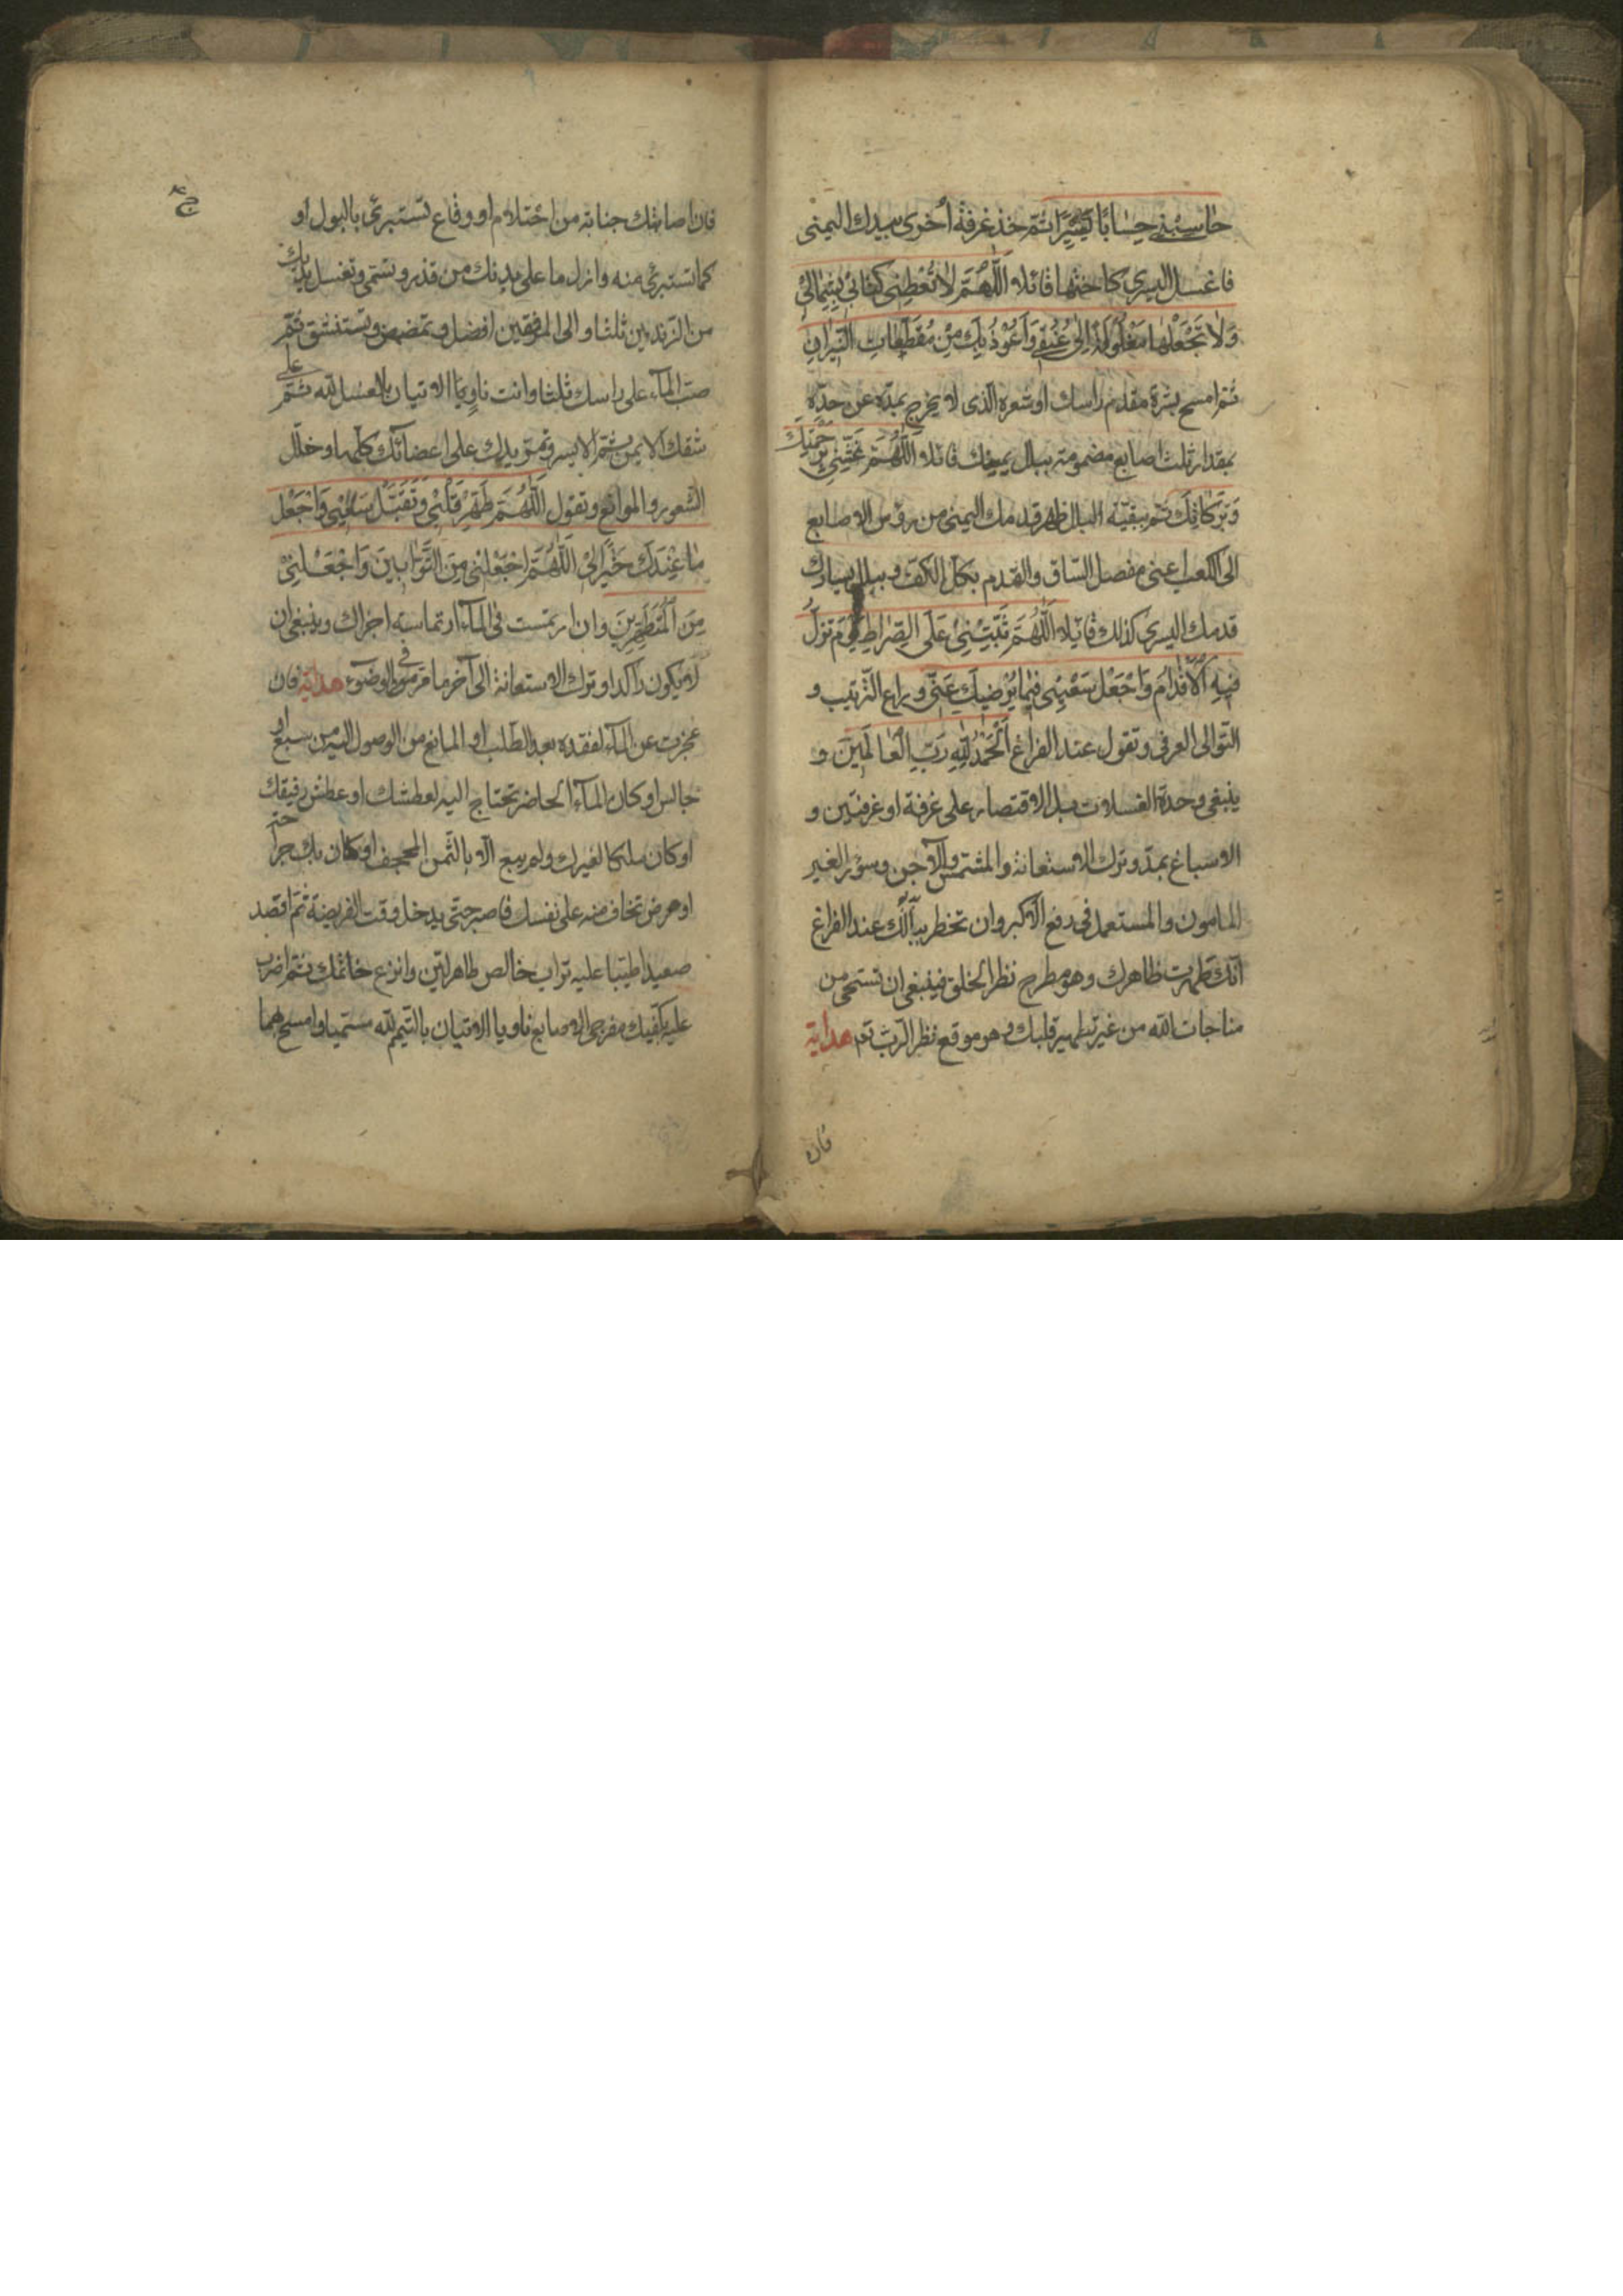 حاسبني حِسَابًا يَسيرًا ثمّ خذ غرفة أخرى بيدك اليمنى
فاغسل اليسرى كاختها قائلا اَللّٰهُمَّ لَا تُعْطِنِي كِتَابِي بِشِمَالِي
وَلَا تَجْعَلْهَا مَغْلُولَةً اِلٰى عُنُقِي وَاَعُوْذُ بِكَ مِنْ مُقَطَّعَاتِ النِّيرَانِ
ثم امسح بشرة مقدم راسك او شعره الذى لا يخرج بمدّه عن حدّه
بمقدار ثلث اصابع مضمومة ببلل يمينك قائلا اَللّٰهُمَّ غَشِّنِي بِرَحْمَتِكَ
وَبَرَكَاتِكَ ثم ببقيّة البلل ظهر قدمك اليمنى من رؤس الاصابع
الى الكعب اعنى مفصل السّاق والقدم بكل الكفّ وببلل يسارك
قدمك اليسرى كذلك قائلا اَللّٰهُمَّ ثَبِّتْنِي عَلَى الصِّرَاطِ يَوْمَ تَزِلُّ
فِيهِ اْلاَقْدَامُ وَاجْعَلْ سَعْيِي فِيمَا يُرْضِيكَ عَنِّي وراع الترتيب و
التوالى العرفى وتقول عند الفراغ اَلْحَمْدُ لِلّٰهِ رَبِّ الْعَالَمِينَ و
ينبغى وحدة الغسلات بل الاقتصار على غرفة او غرفتين و
الاسباغ بمدّ وترك الاستعانة والمشمّس والآجن وسؤر الغير
المامون والمستعمل فى رفع الاكبر وان تخطر ببالك عند الفراغ
انّك طهرت ظاهرك وهو مطرح نظر الخلق فينبغى ان تستحى من
مناجات الله من غير تطهير قلبك وهو موقع نظر الربّ تم هداية
فان
ج
فان اصابتك جنابة من احتلام او وقاع تستبرئ بالبول او
كما تستبرئ منه وازل ما على بدنك من قذر وتسمّى وتغسل يديك
من الزندين ثلثا والى المرفقين افضل وتمضمض وتستنشق ثمّ
صبّ المآء على راسك ثلثا وانت ناويا الاتيان بالغسل لله ثمّ على
شقك الايمن ثمّ الايسر وتمرّ يدك على اعضائك كلّها وخلّل
الشعور والموانع وتقول اَللّٰهُمَّ طَهِّرْ قَلْبِي وَتَقَبَّلْ سَعْيِي وَاجْعَلْ
مَا عِنْدَكَ خَيْرًا لِي اَللّٰهُمَّ اجْعَلْنِي مِنَ التَّوَّابِينَ وَاجْعَلْنِي
مِنَ الْمُتَطَهِّرِينَ وان ارتمست فى المآء ارتماسة اجزاك وينبغى ان
لا يكون راكدا وترك الاستعانة الى آخر ما مرّ فى الوضوء هداية فان
عجزت عن المآء لفقده بعد الطلب او المانع من الوصول اليه من سبع او
حابس او كان المآء الحاضر تحتاج اليه لعطشك او عطش رفيقك
او كان ملكا لغيرك ولم يبع الا بالثمن المجحف او كان بك جراحة
او مرض تخاف منه على نفسك فاصبر حتّى يدخل وقت الفريضة ثم اقصد
صعيدا طيّبا عليه تراب خالص طاهر ليّن وانزع خاتمك ثم اضرب
عليه بكفّيك مفرجى الاصابع ناويا الاتيان بالتيمم لله مسمّيا وامسح بهما